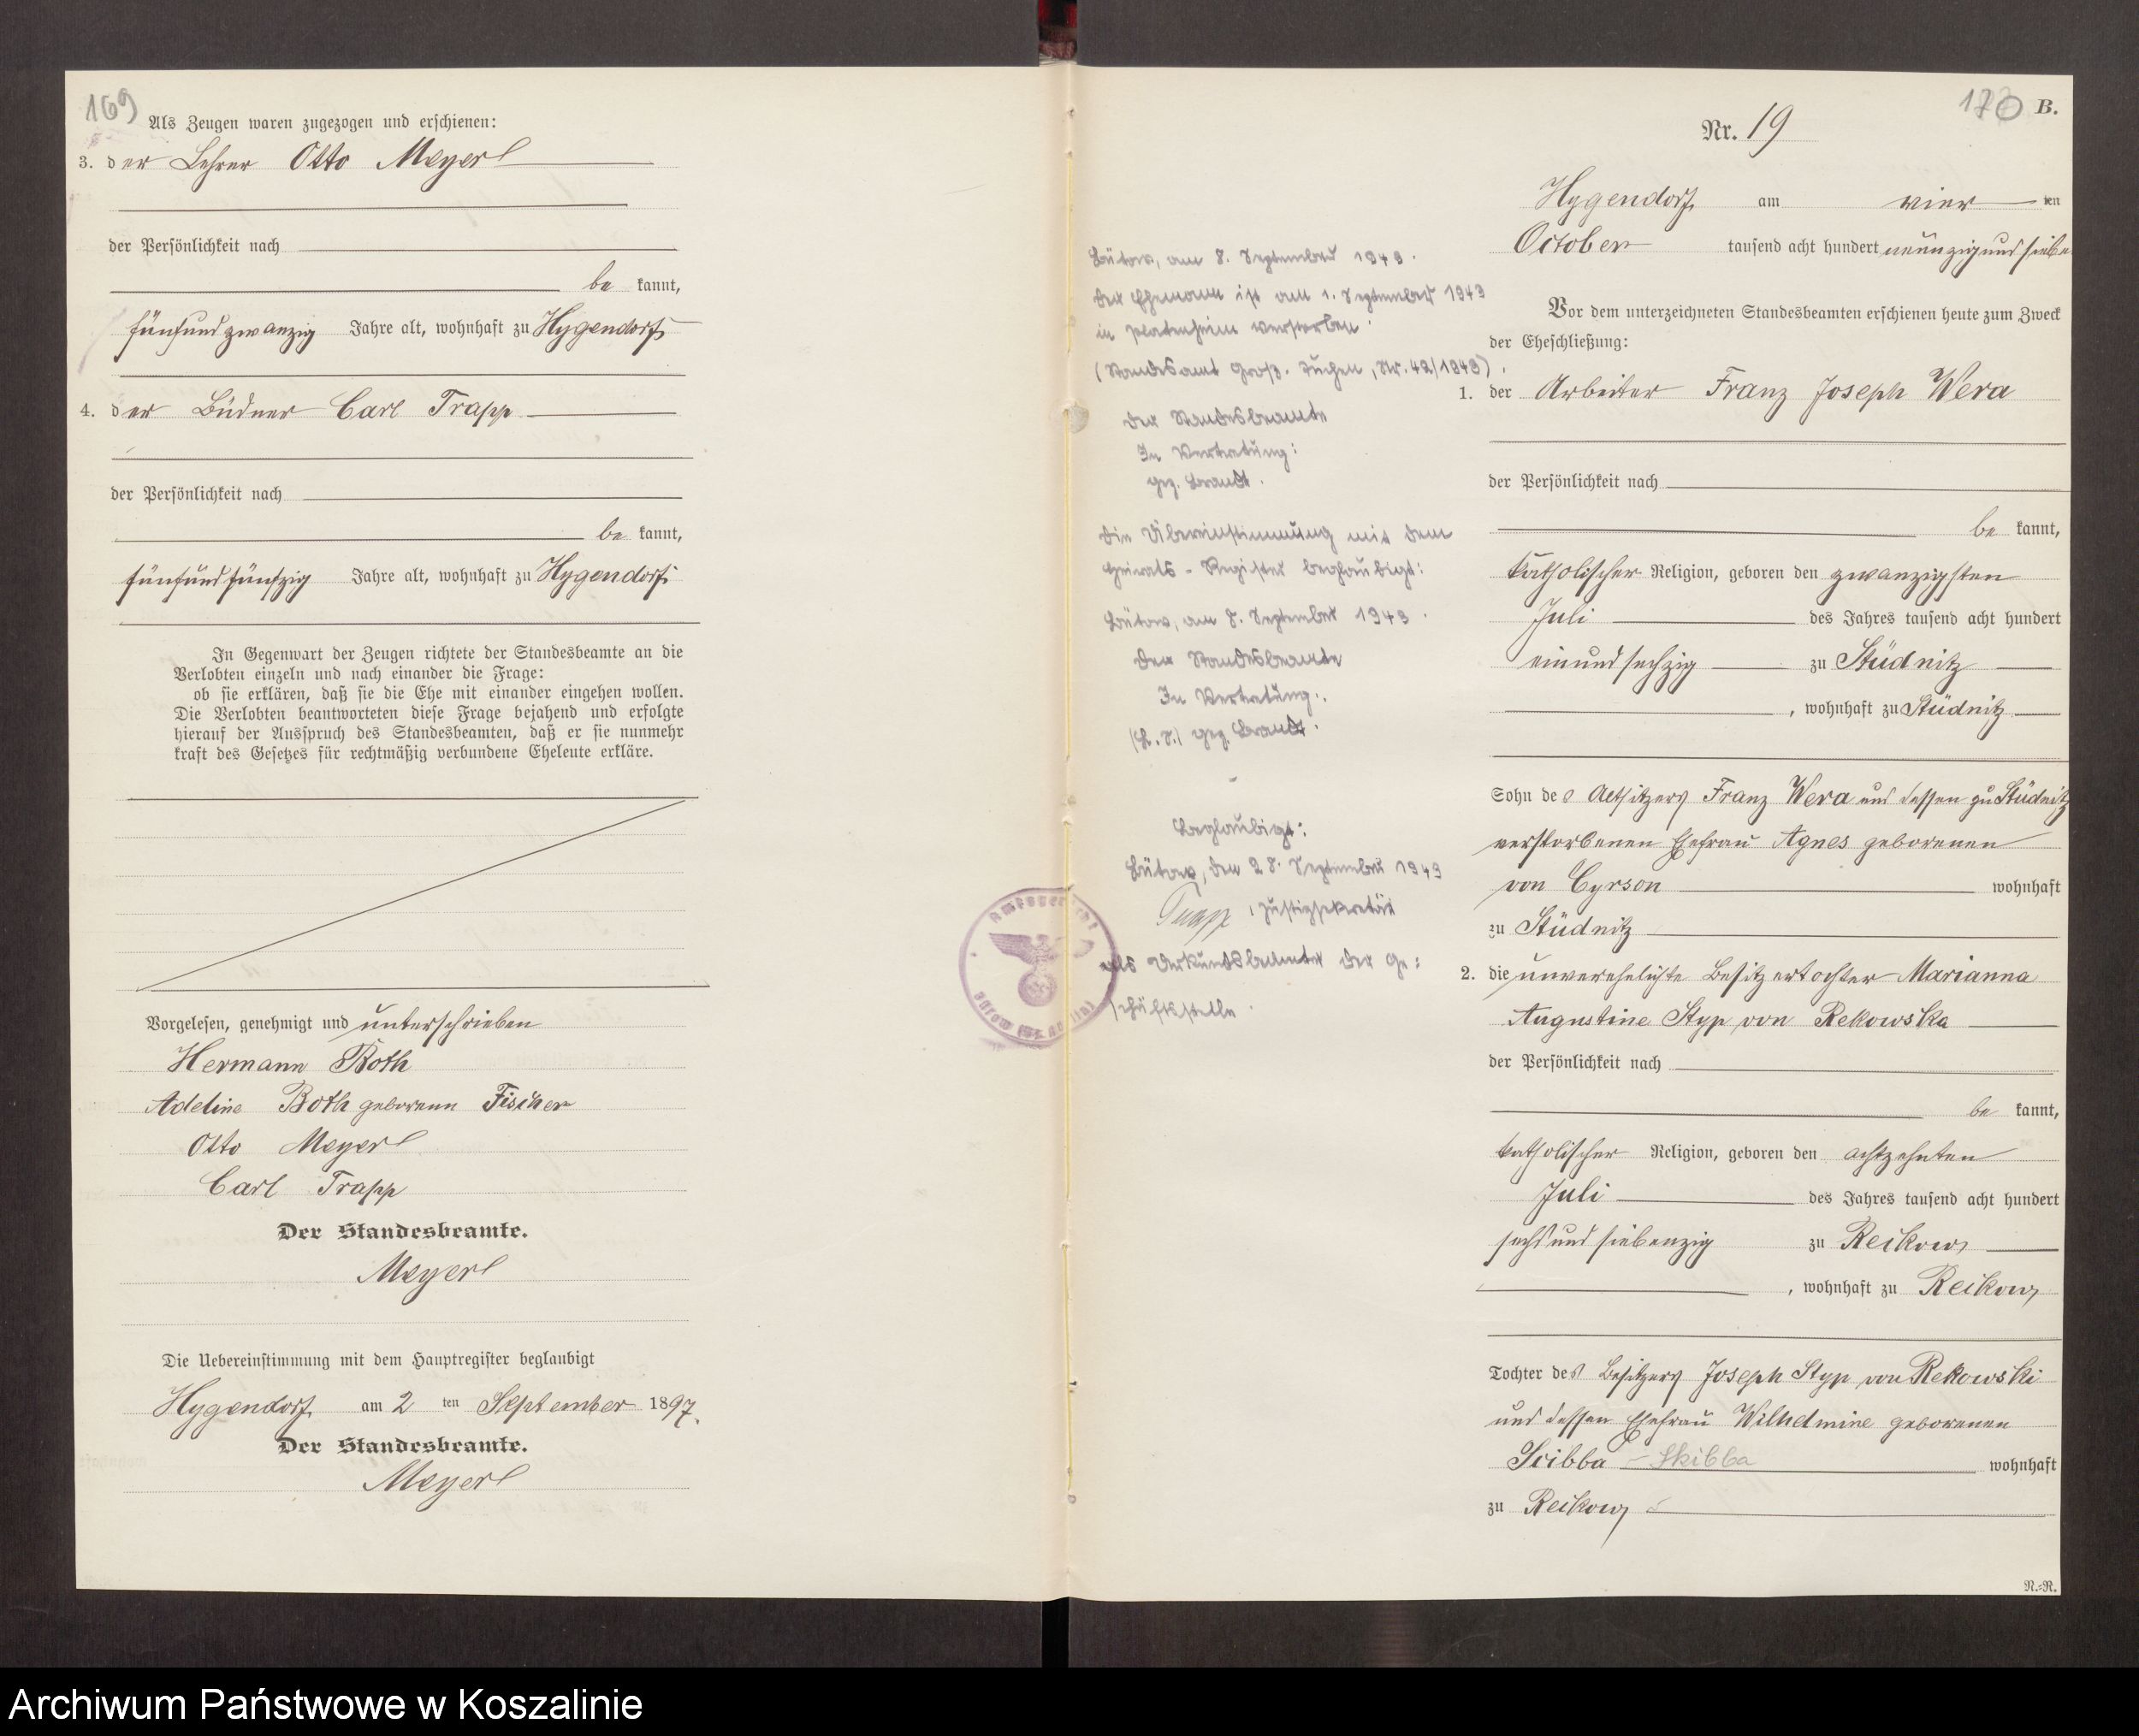 169
Als Zeugen waren zugezogen und erschienen:
3. der Lehrer Otto Meyerl
der Persönlichkeit nach
be kannt,
fünfundzwanzig Jahre alt, wohnhaft zu Hygendorf
4. der Büdner Carl Trapp
der Persönlichkeit nach
be kannt,
fünfundfünfzig Jahre alt, wohnhaft zu Hygendorf
In Gegenwart der Zeugen richtete der Standesbeamte an die
Verlobten einzeln und nach einander die Frage:
ob sie erklären, daß sie die Ehe mit einander eingehen wollen.
Die Verlobten beantworteten diese Frage bejahend und erfolgte
hierauf der Ausspruch des Standesbeamten, daß er sie nunmehr
kraft des Gesetzes für rechtmäßig verbundene Eheleute erkläre.
Vorgelesen, genehmigt und unterschrieben
Hermann Both
Adeline Both geborene Fischer
Otto Meyerl
Carl Trapp
Der Standesbeamte.
Meyerl
Die Uebereinstimmung mit dem Hauptregister beglaubigt
Hygendorf am 2 ten September 1897.
Der Standesbeamte.
Meyerl
Bütow, am 8. September 1943.
Der Ehemann ist am 1. September 1943
in Platenheim verstorben.
(Standesamt Groß. Tuchen, Nr. 42/1943).
Der Standesbeamte
In Vertretung:
gez. Brandt.
Die Übereinstimmung mit dem
Heirats-Register beglaubigt:
Bütow, am 8. September 1943.
Der Standesbeamte
In Vertretung.
(L.S.) gez. Brandt.
Beglaubigt:
Bütow, den 28. September 1943
, Justizsekretär
als Urkundsbeamter der Ge=
schäftsstelle.
Amtsgericht
Bütow
170 B.
Nr. 19
Hygendorf am vier ten
October tausend acht hundert neunzig und siebe
Vor dem unterzeichneten Standesbeamten erschienen heute zum Zweck
der Eheschließung:
1. der Arbeiter Franz Joseph Wera
der Persönlichkeit nach
be kannt,
katholischer Religion, geboren den zwanzigsten
Juli des Jahres tausend acht hundert
einundsechzig zu Stüdnitz
, wohnhaft zu Stüdnitz
Sohn des Altsitzers Franz Wera und dessen zu Stüdnitz
verstorbenen Ehefrau Agnes geborenen
von Cyrson wohnhaft
zu Stüdnitz
2. die unverehelichte Besitzertochter Marianna
Augustine Styp von Rekowska
der Persönlichkeit nach
be kannt,
katholischer Religion, geboren den achtzehnten
Juli des Jahres tausend acht hundert
sechs und siebenzig zu Reikow
, wohnhaft zu Reikow
Tochter des Besitzers Joseph Styp von Rekowski
und dessen Ehefrau Wilhelmine geborenen
Scibba - Skibba wohnhaft
zu Reikow
N.-N.
Archiwum Państwowe w Koszalinie